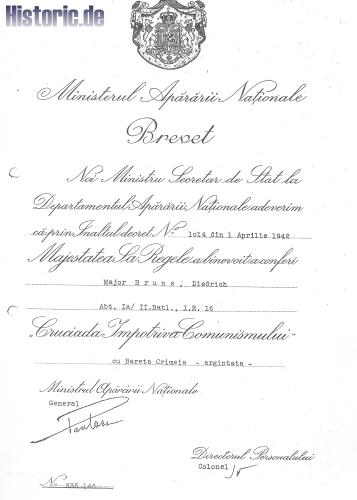 Historic.de
Ministerul Apărării Naţionale
Brevet
Noi Ministru Secretar de Stat la
Departamentul Apărării Naţionale adeverim
că prin Înaltul decret No 1014 din 1 Aprilie 1942
Majestatea Sa Regele a binevoit a conferi
Major Bruns, Diedrich
Abt. Ia/ II.Batl., I.R. 16
"Cruciada Împotriva Comunismului"
cu Bareta Crimeia - argintata -
Ministrul Apărării Naţionale
General
Directorul Personalului
Colonel
No 235.146